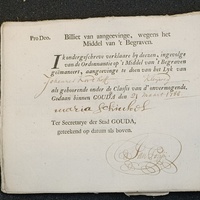 Pro Deo. Billiet van aangeevinge, wegens het
Middel van 't Begraven.
Ik ondergeschreve verklaare by deezen, ingevolge
van de Ordonnantie op 't Middel van 't Begraven
geëmaneert, aangeevinge te doen van het Lyk van
Johannes
als gehoorende onder de Classis van d'onvermogende,
Gedaan binnen GOUDA den 21 maart
maria
Ter Secretarye der Stad GOUDA,
geteekend op datum als boven.